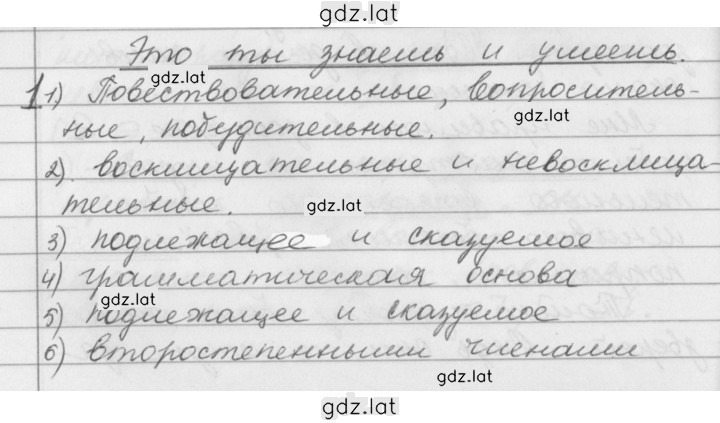 gdz.lat
Это ты знаешь и умеешь.
gdz.lat
1 1) Повествовательные, вопроситель-
gdz.lat
ные, побудительные.
2). восклицательные и невосклица-
тельные.
gdz.lat
3) подлежащее и сказуемое
4) грамматическая основа
gdz.lat
5) подлежащее и сказуемое
6) второстепенными членами
gdz.lat
gdz.lat